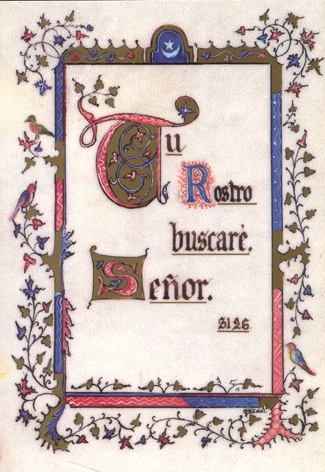 Tu
Rostro
buscaré.
Señor.
Sl 26.